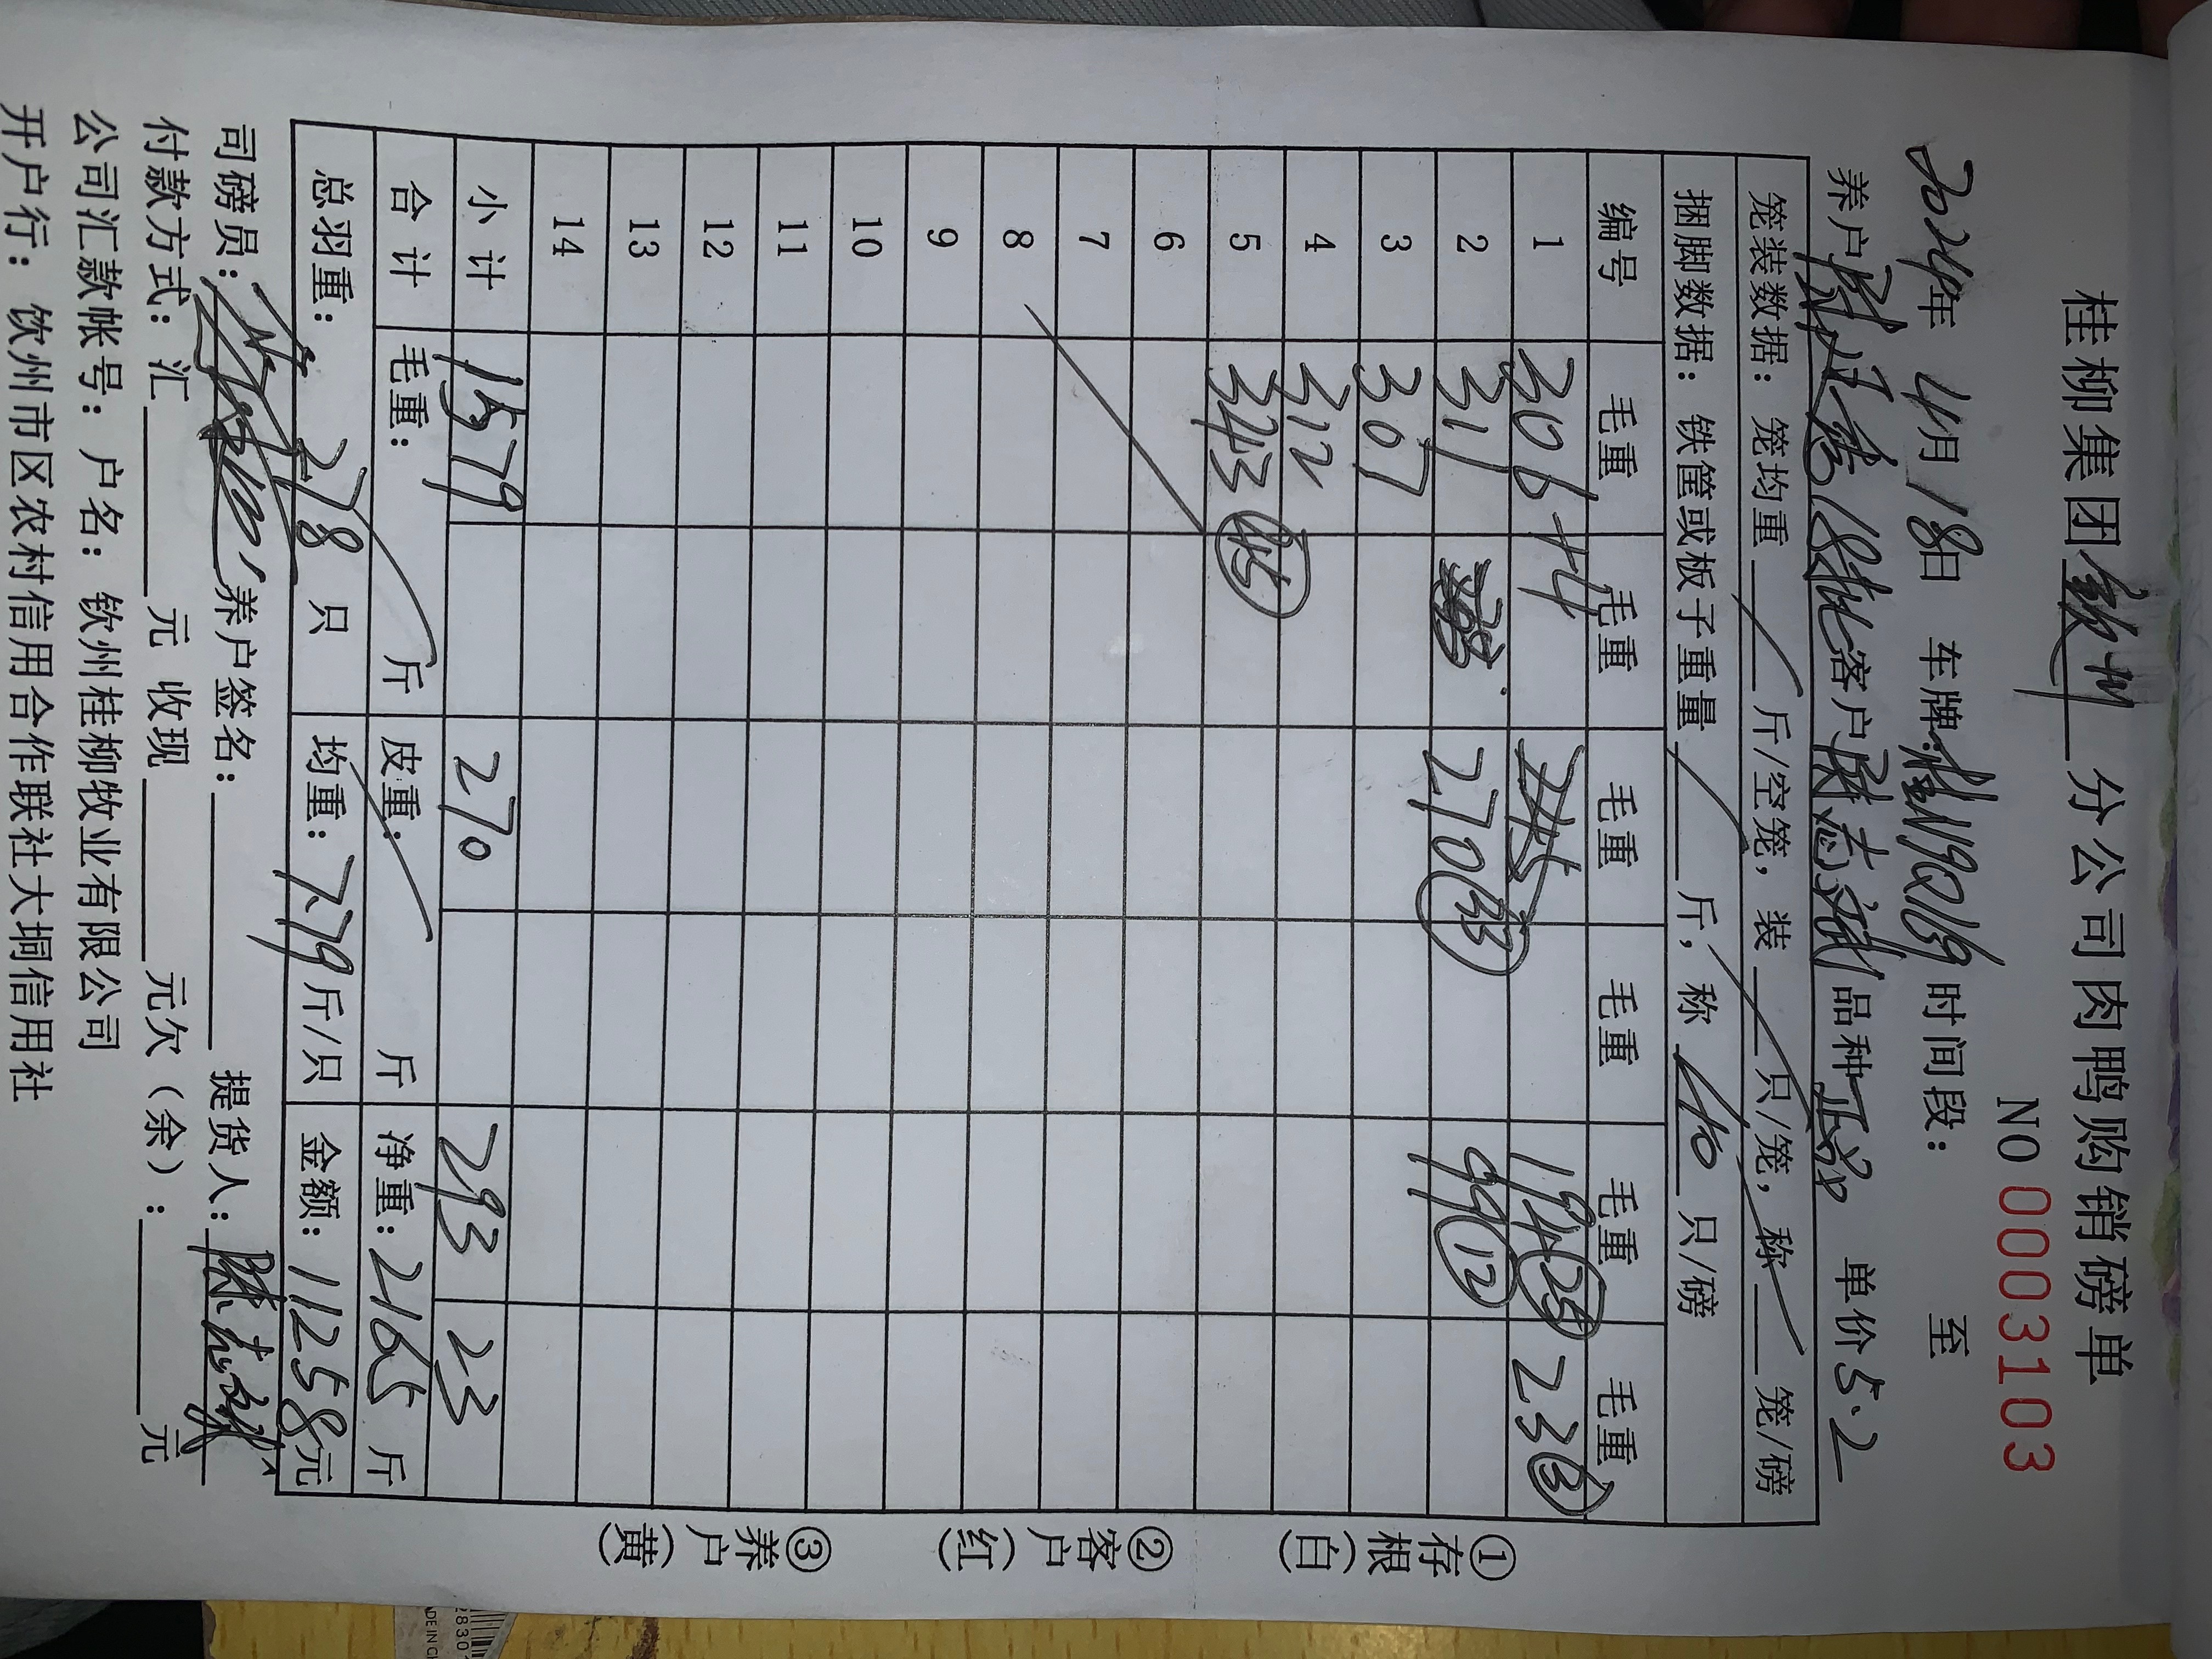 桂柳集团钦州分公司肉鸭购销磅单
NO 0003103
2024年 4月18日 车牌:桂N9Q169 时间段: 至
养户 18批 客户陈志斌 品种正品 单价5.2
笼装数据: 笼均重 斤/空笼, 装 只/笼, 称 笼/磅
捆脚数据: 铁筐或板子重量 斤, 称 40 只/磅
编号 毛重 毛重 毛重 毛重 毛重 毛重
1 306+4 194(25) 23(3)
2 311 270(33) 99(12)
3 307
4 312
5 343(45)
6
7
8
9
10
11
12
13
14
小计 1579 270 293 23
合计 毛重: 斤 皮重: 斤 净重: 2165 斤
总羽重: 278 只 均重: 7.79 斤/只 金额: 11258元
司磅员: 养户签名: 提货人: 陈志斌
付款方式: 汇 元 收现 元欠(余): 元
公司汇款帐号: 户名: 钦州桂柳牧业有限公司
开户行: 饮州市区农村信用合作联社大垌信用社
①存根(白)
②客户(红)
③养户(黄)